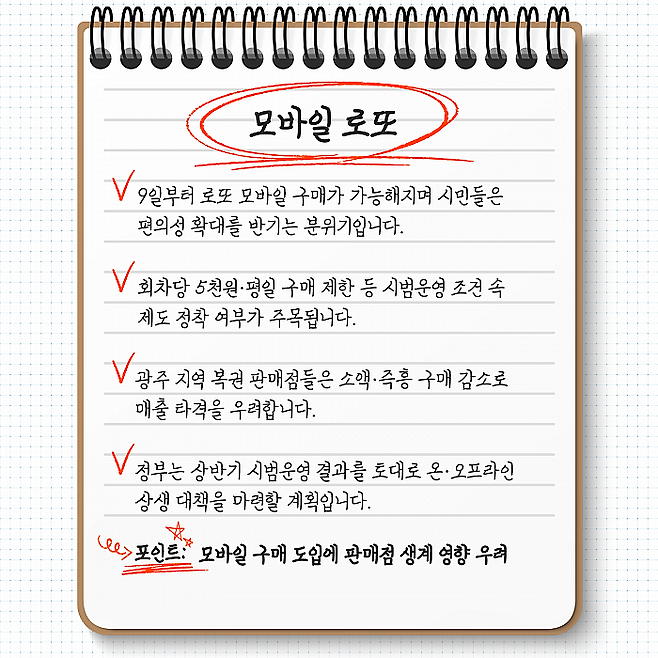 모바일 로또
9일부터 로또 모바일 구매가 가능해지며 시민들은
편의성 확대를 반기는 분위기입니다.
회차당 5천원·평일 구매 제한 등 시범운영 조건 속
제도 정착 여부가 주목됩니다.
광주 지역 복권 판매점들은 소액·즉흥 구매 감소로
매출 타격을 우려합니다.
정부는 상반기 시범운영 결과를 토대로 온·오프라인
상생 대책을 마련할 계획입니다.
포인트: 모바일 구매 도입에 판매점 생계 영향 우려